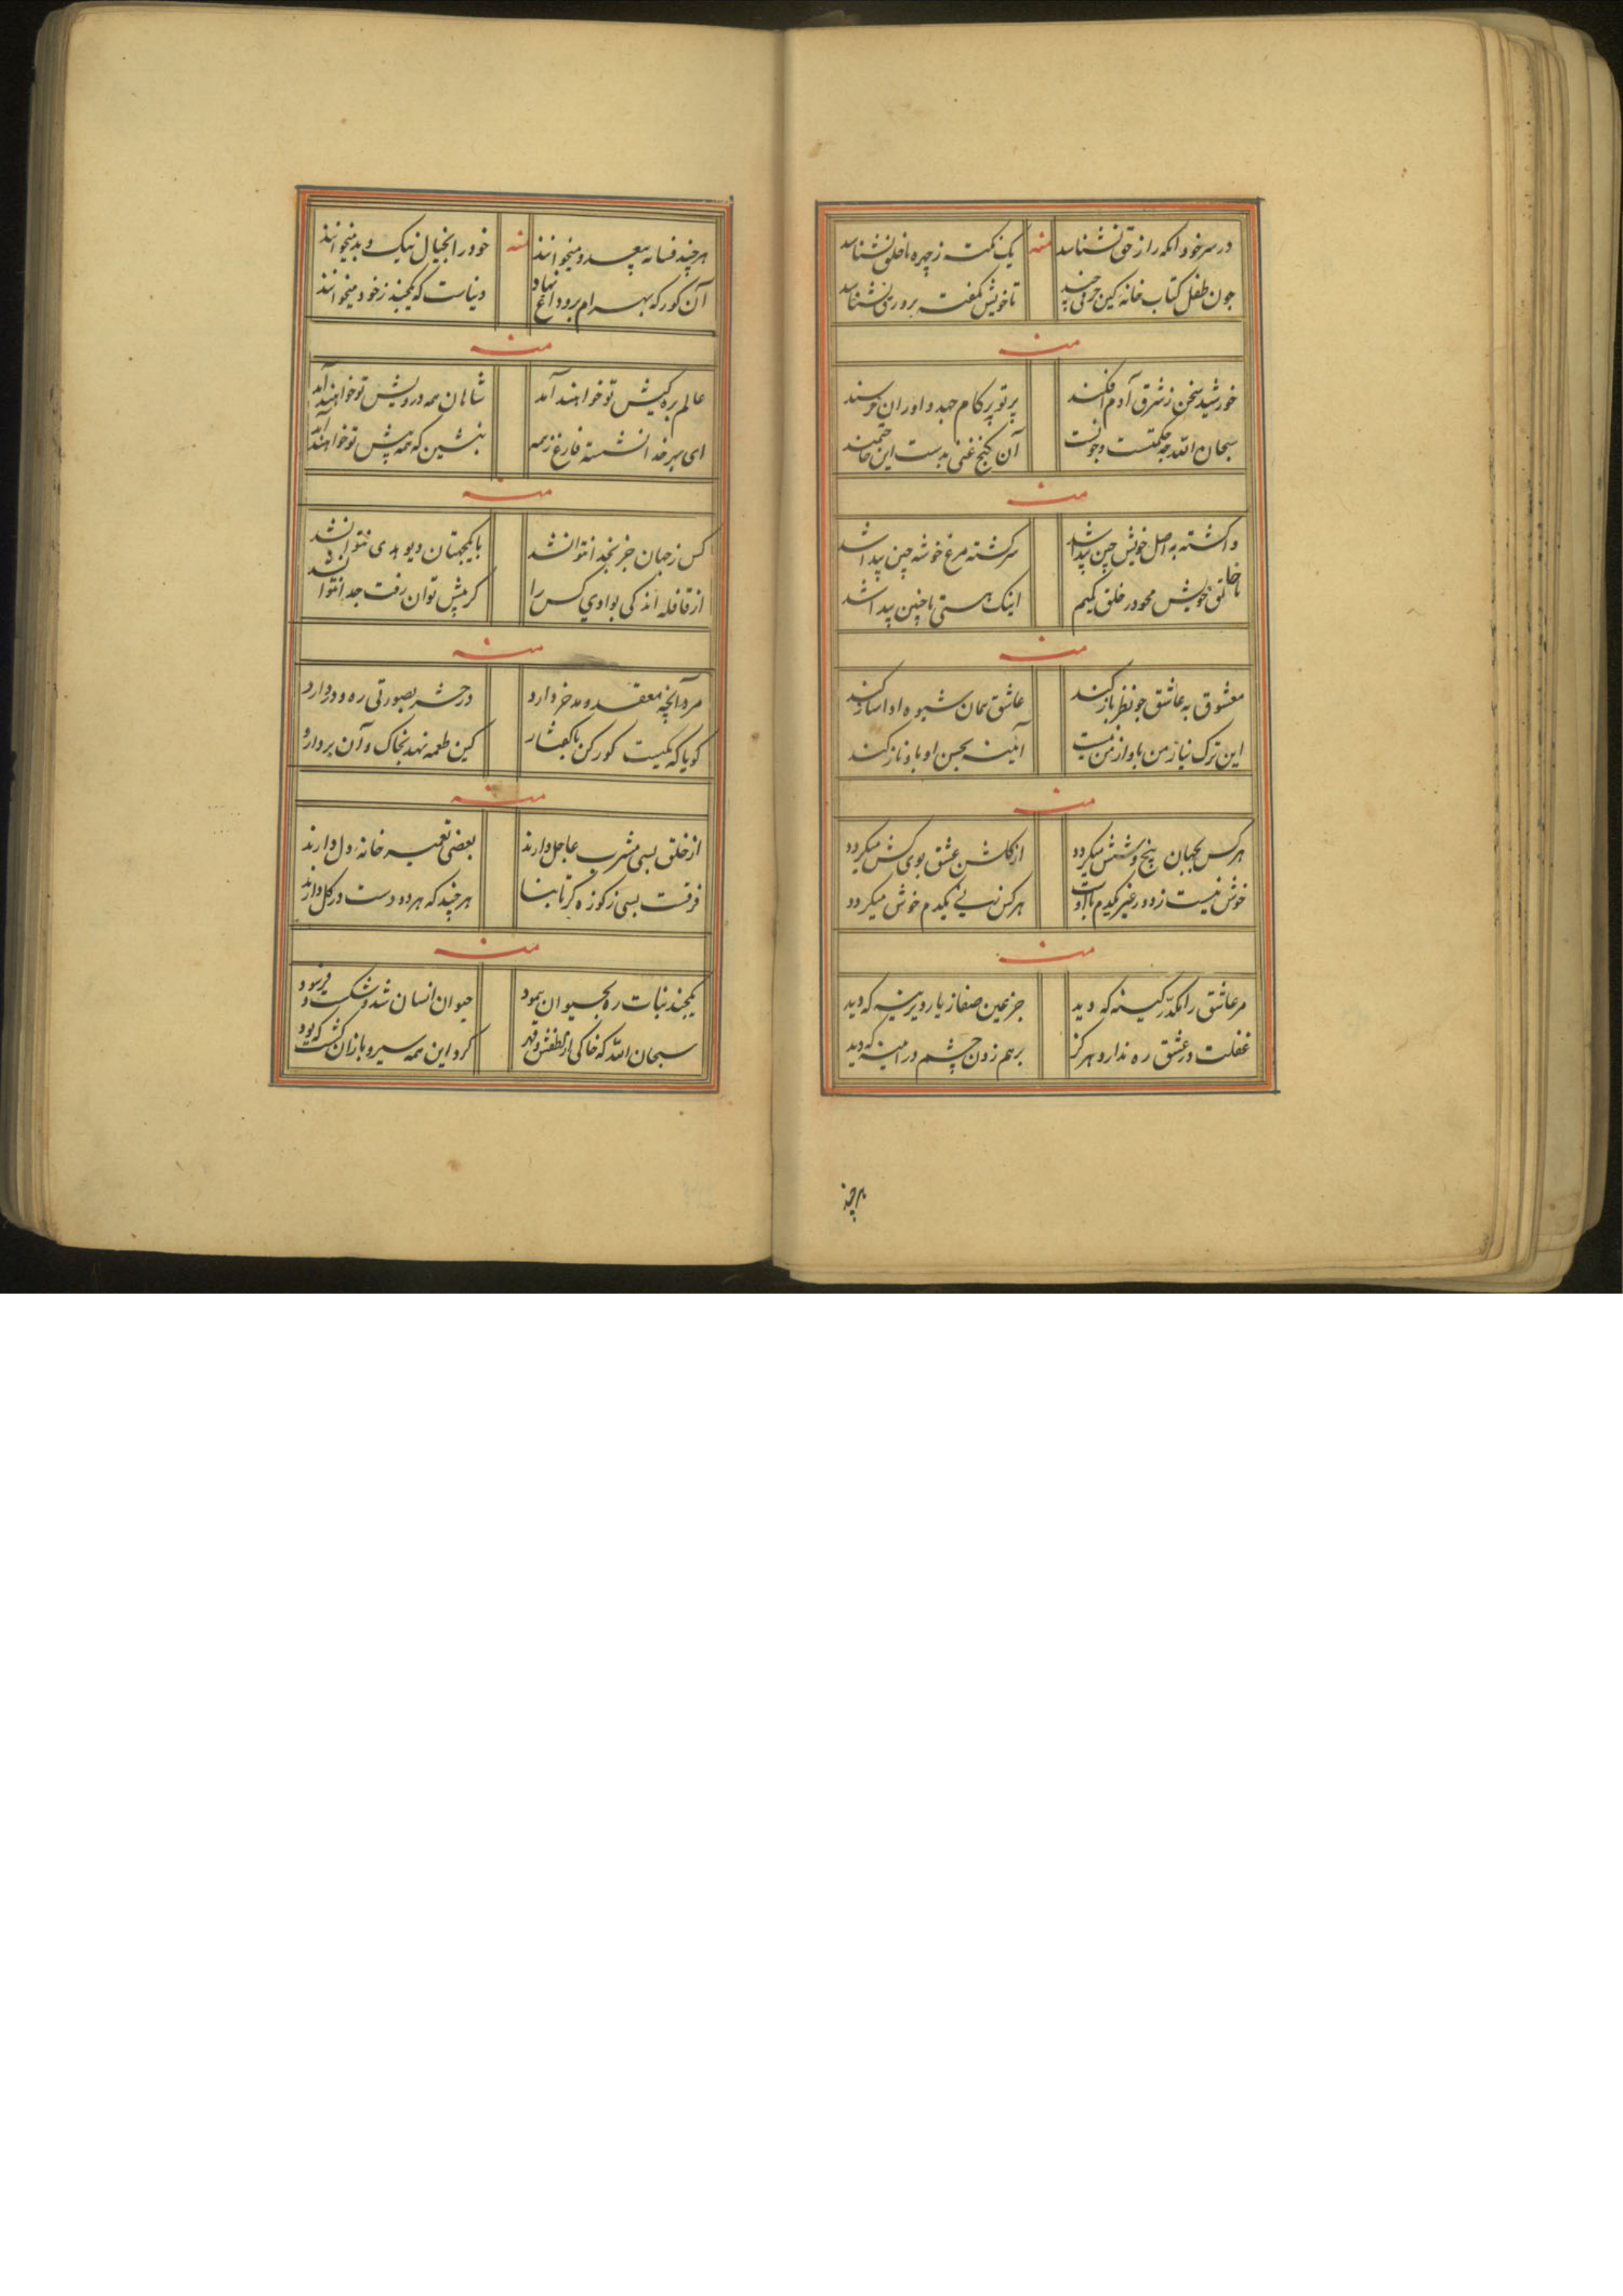 در سر خود انکه راز حق نشناسد منه یک نکته ز چهره ناخلق نشناسد
چون طفل کتاب خانه کین حرفی چند تا خویش نکفت برورق نشناسد
منه
خورشید سخن ز شرق آدم افکند پرتو بر کام جهد و اوران خرسند
سبحان الله چه حکمتست و چونست آن کنج غنی بدست این حاجتمند
منه
واکشته به اصل خویش چین پیدا شد سرکشته مرغ خوشه چین پیدا شد
ناخلق خویش محو در خلق کیم اینک هستی ما چنین پیدا شد
منه
معشوق به عاشق چو نظر باز کند عاشق همان شیوه ادا ساز کند
این ترک نیاز من باو از من نیست آینه بحسن او باو ناز کند
منه
هر کس بجهان پنج و شش میکردد از کلشن عشق بوی کش میکردد
خوش نیست زدود غیر یکدم با دوست هر کس نه یکدم خوش میکردد
منه
مر عاشق را مکدر کینه که دید جز عین صفا ز یار دیرینه که دید
غفلت در عشق ره ندارد هرکز برهم زدن چشم در اینه که دید
هرچند
هرچند فسانه بیعدد میخوانند منه خود را بخیال نیک و بد میخوانند
آن کور که بهرام برو داغ نهاد دنیاست که یکچند ز خود میخوانند
منه
عالم بره کیش تو خواهند آمد شاهان همه درویش تو خواهند آمد
ای بهر خدا نشسته فارغ ز همه بنشین که همه پیش تو خواهند آمد
منه
کس ز جهان جز بخدا نتوانشد با یکجهتان دیو بدی نتوانشد
از قافله اندکی بوادی کس را کر پیش توان رفت جدا نتوانشد
منه
مرد آنچه معتقد و مدخر دارد در حشر بصورتی ره و در دارد
کویا که یکیست کورکن با کفتار کین طعمه نهد بخاک و آن بردارد
منه
از خلق بسی مشرب عاجل دارند بعضی تعمیر خانه دل دارند
فرقست بسی ز کوزه کر تا بنا هرچند که هر دو دست در کل دارند
منه
یکچند نبات ره بحیوان پیمود حیوان انسان شد و شکست و فرسود
سبحان الله که خاکی از لطفش و قهر کرد این همه سیر و باز آن کشت که بود